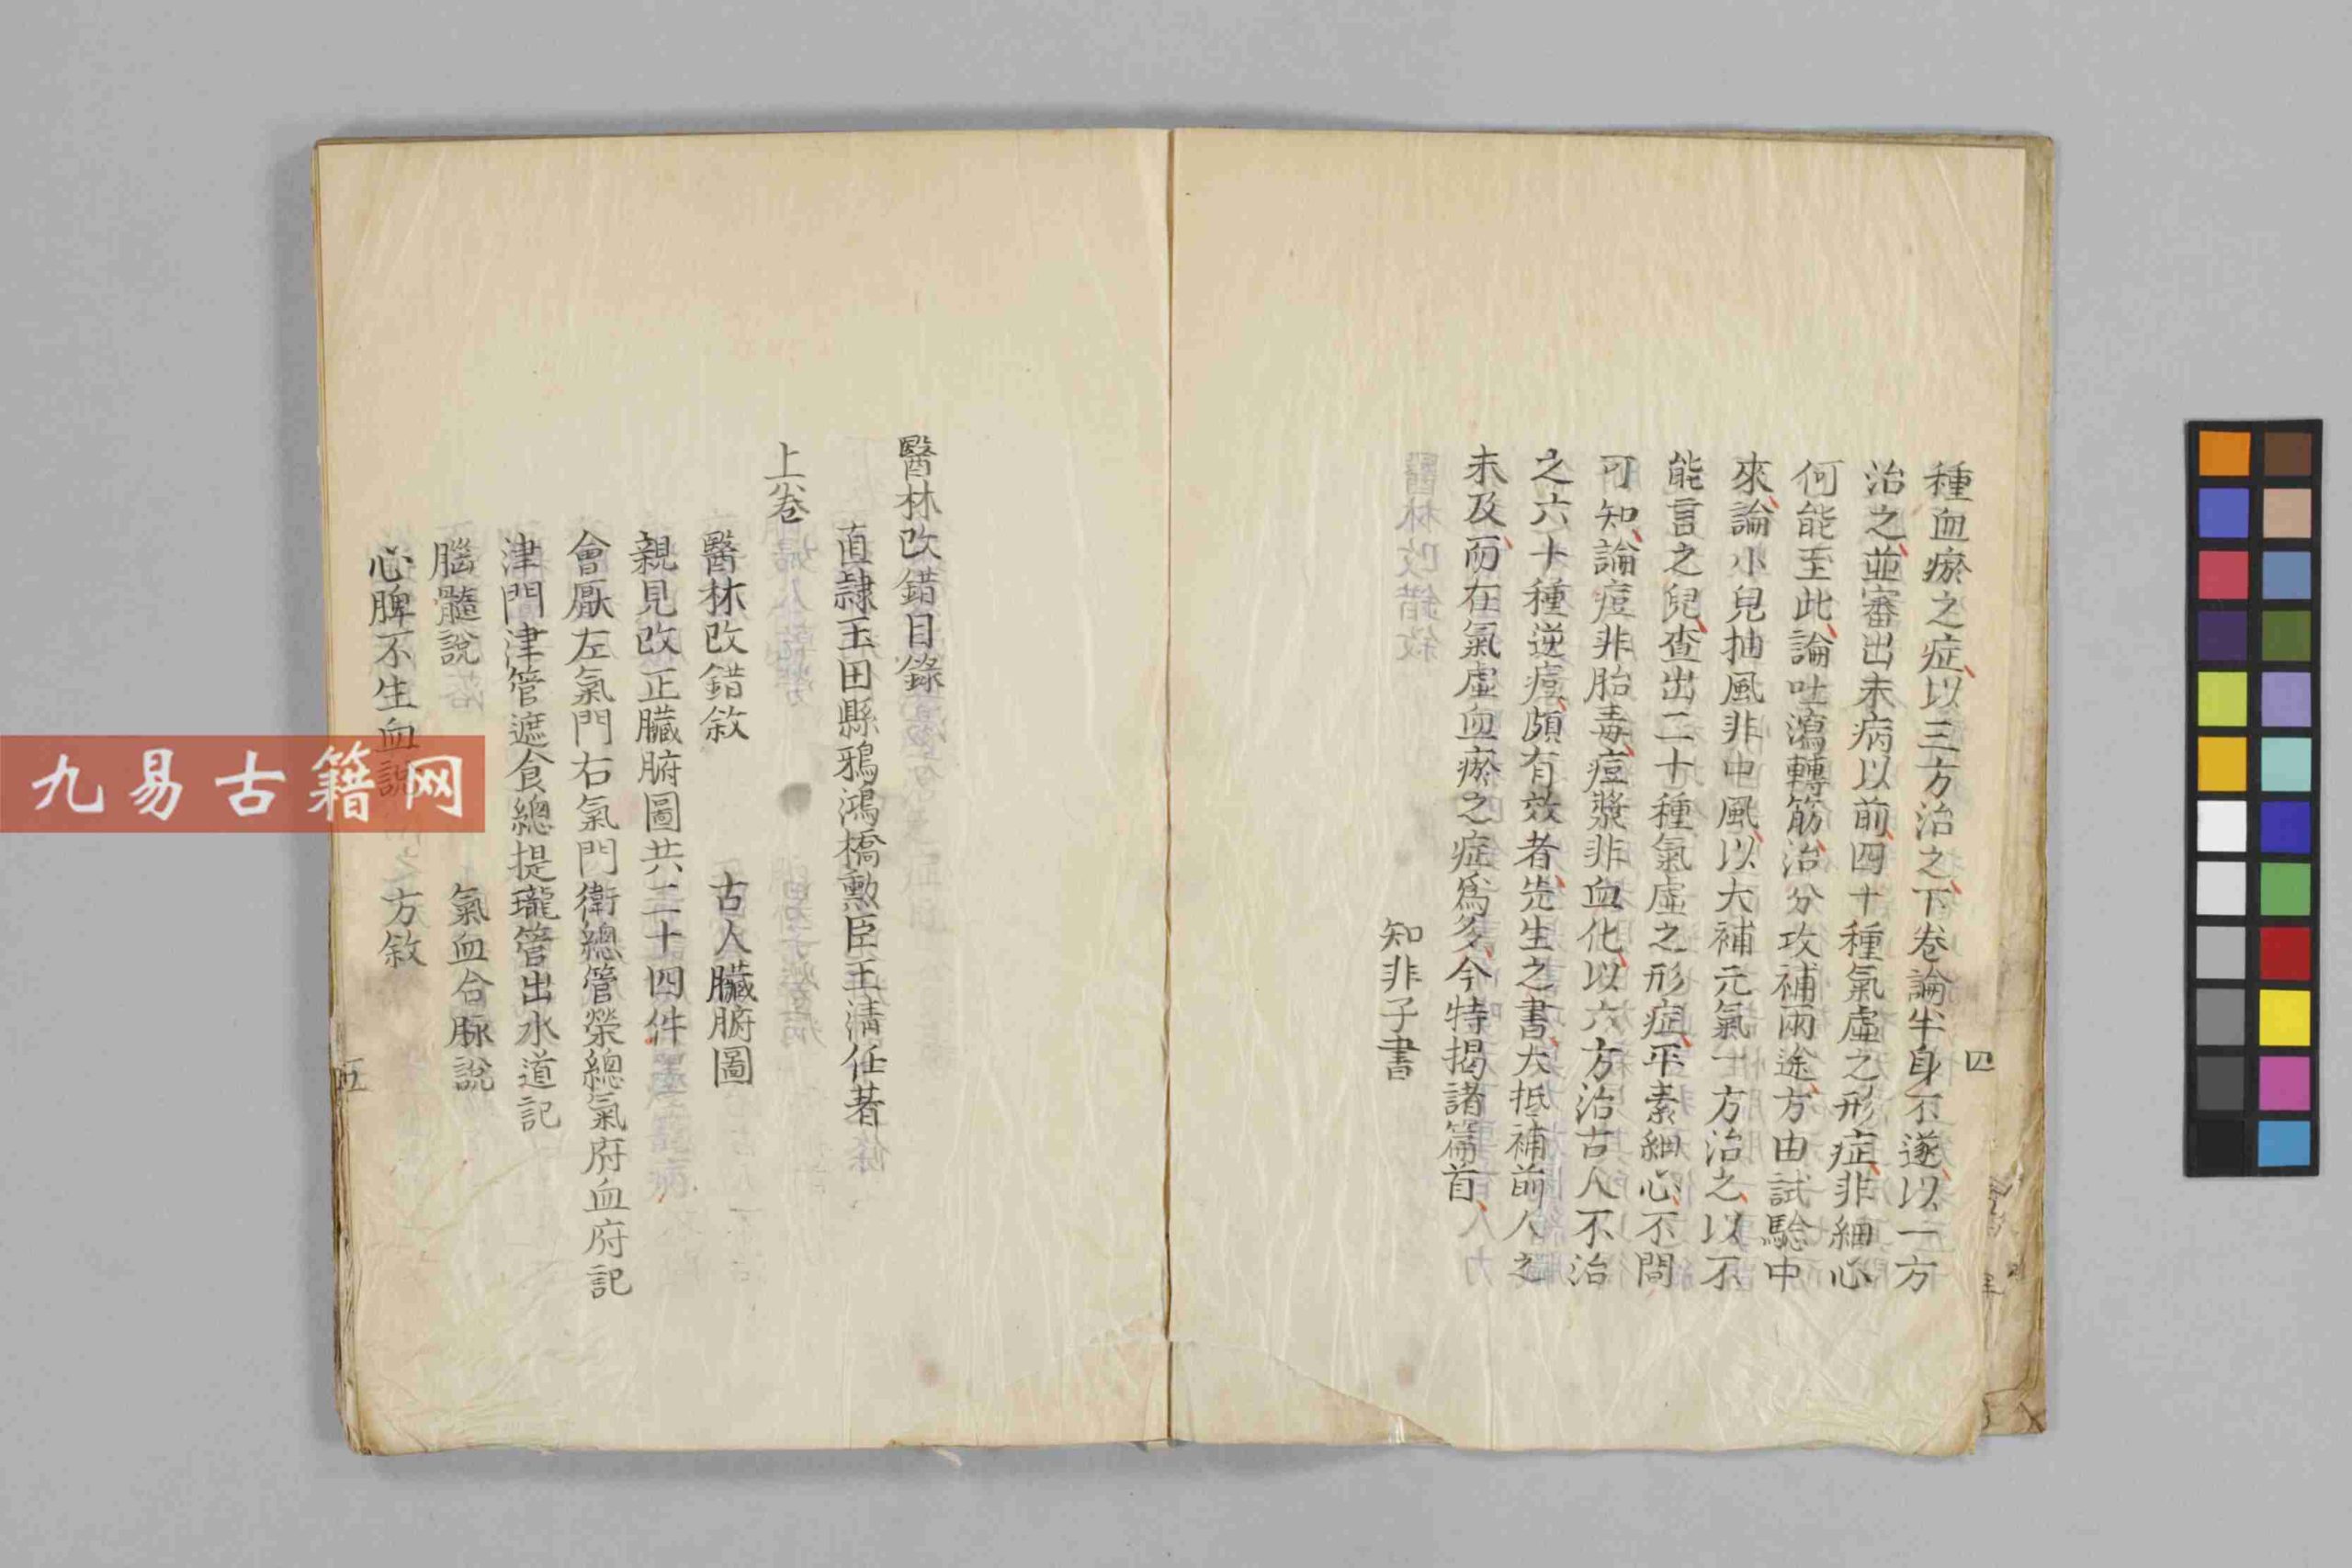 種血瘀之症以三方治之下卷論半身不遂以一方
治之並審出未病以前四十種氣虛之形症非細心
何能至此論吐瀉轉筋治分攻補兩途方由試驗中
來論小兒抽風非中風以大補元氣一方治之以不
能言之兒查出二十種氣虛之形症平素細心不問
可知論痘非胎毒痘漿非血化以六方治古人不治
之六十種逆痘頗有效者先生之書大抵補前人之
未及而在氣虛血瘀之症爲多今特揭諸篇首
知非子書
四
醫林改錯目錄
直隸玉田縣鴉鴻橋勲臣王清任著
上卷
醫林改錯敘 古人臟腑圖
親見改正臟腑圖共二十四件
會厭左氣門右氣門衛總管榮總氣府血府記
津門津管遮食總提瓏管出水道記
腦髓說 氣血合脉說
心脾不生血說 方敘
五
九易古籍网